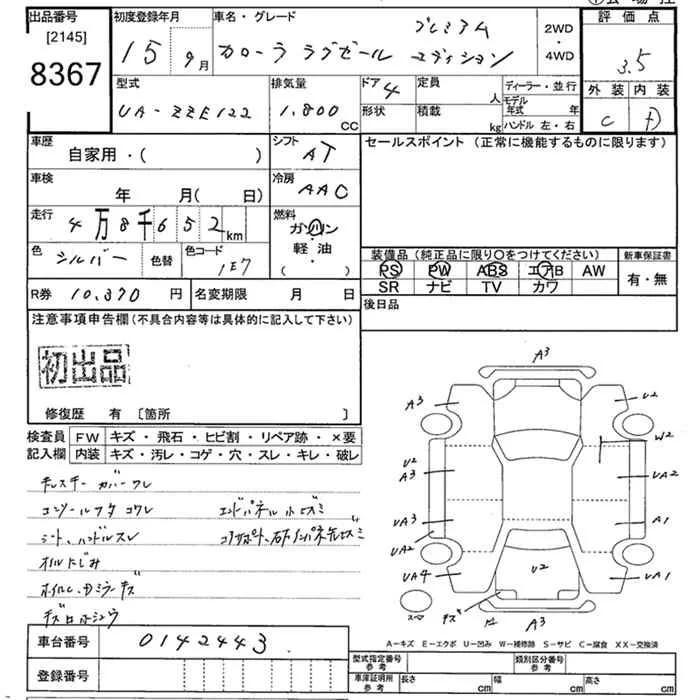 出品番号
[2145]
8367
初度登録年月
15 9月
車名・グレード
プレミアム
カローラ ラグゼール エディション
2WD
・
4WD
評価点
3.5
外装 内装
C D
型式
UA-ZZE122
排気量
1,800
CC
ドア 4
形状
定員
人
積載
kg
ディーラー・並行
モデル年式 年
ハンドル 左・右
車歴
自家用・( )
シフト
AT
車検
年 月( 日)
冷房
AAC
走行
4万8千652km
燃料
ガソリン
軽油
( )
色
シルバー
色替
色コード
1E7
R券 10,370 円
名変期限 月 日
セールスポイント (正常に機能するものに限ります)
装備品 (純正品に限り〇をつけてください)
PS PW ABS エアB AW
SR ナビ TV カワ
新車保証書
有・無
後日品
注意事項申告欄(不具合内容等は具体的に記入して下さい)
初出品
修復歴 有 [箇所 ]
検査員記入欄
FW キズ・飛石・ヒビ割・リペア跡・×要
内装 キズ・汚レ・コゲ・穴・スレ・キレ・破レ
コンソールフタ コワレ
シート、ハンドルスレ
オイルにじみ
A3
A3
U2
W2
U2
A3
UA2
UA3
A1
UA2
UA4
U2
UA1
キズ
A3
A-キズ E-エクボ U-凹み W-補修跡 S-サビ C-腐食 XX-交換済
車台番号 0142443
登録番号
型式指定番号
参考
類別区分番号
参考
車庫証明用
参考
長さ cm
幅 cm
高さ cm